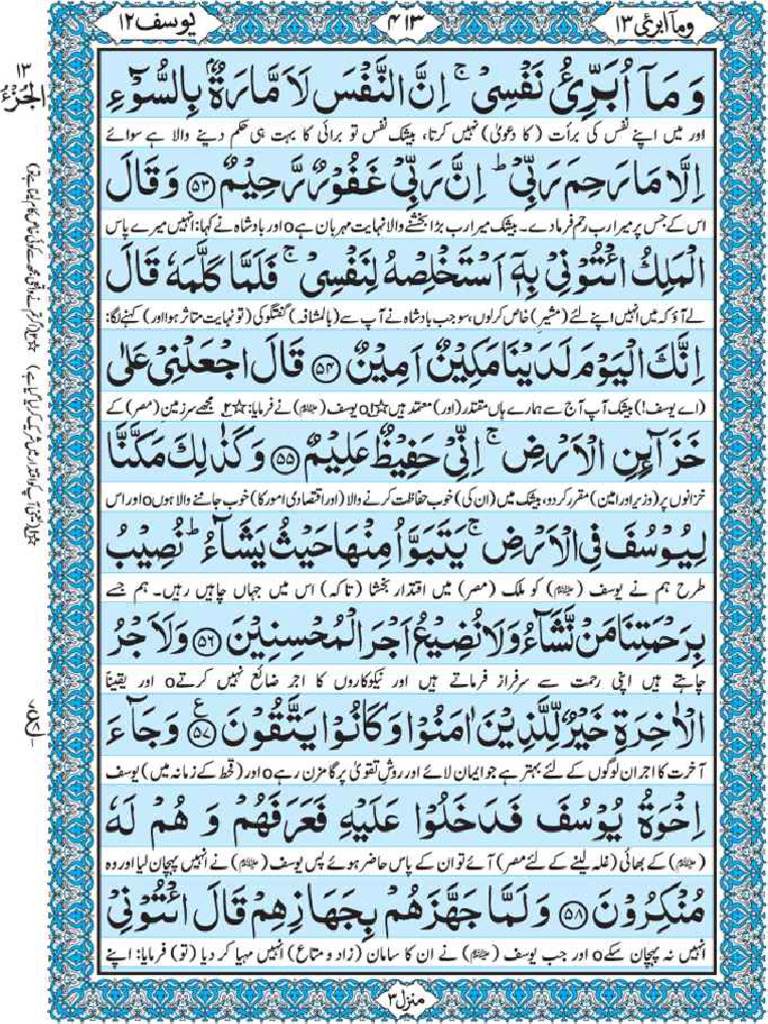 وما ابرئ ١٣
٤١٣
يوسف ١٢
١٣
الجزء
وَ مَاۤ اُبَرِّئُ نَفْسِیْ ۚ اِنَّ النَّفْسَ لَاَ مَّارَةٌۢ بِالسُّوْٓءِ
اور میں اپنے نفس کی برأت (کا دعویٰ) نہیں کرتا، بیشک نفس تو برائی کا بہت ہی حکم دینے والا ہے سوائے
اِلَّا مَا رَحِمَ رَبِّیْ ؕ اِنَّ رَبِّیْ غَفُوْرٌ رَّحِیْمٌ ﴿۵۳﴾ وَ قَالَ
اس کے جس پر میرا رب رحم فرما دے۔ بیشک میرا رب بڑا بخشنے والا نہایت مہربان ہےo اور بادشاہ نے کہا: انہیں میرے پاس
الْمَلِكُ ائْتُوْنِیْ بِهٖۤ اَسْتَخْلِصْهُ لِنَفْسِیْ ۚ فَلَمَّا كَلَّمَهٗ قَالَ
لے آؤ کہ میں انہیں اپنے لئے (مشیرِ) خاص کر لوں، سو جب بادشاہ نے آپ سے (بالمشافہ) گفتگو کی (تو نہایت متاثر ہوا اور) کہنے لگا:
اِنَّكَ الْیَوْمَ لَدَیْنَا مَكِیْنٌ اَمِیْنٌ ﴿۵۴﴾ قَالَ اجْعَلْنِیْ عَلٰی
(اے یوسف!) بیشک آپ آج سے ہمارے ہاں مقتدر (اور) معتمد ہیں☆۱o یوسف (علیہ السلام) نے فرمایا: ☆۲ مجھے سرزمینِ (مصر) کے
خَزَآىِٕنِ الْاَرْضِ ۚ اِنِّیْ حَفِیْظٌ عَلِیْمٌ ﴿۵۵﴾ وَ كَذٰلِكَ مَكَّنَّا
خزانوں پر (وزیر اور امین) مقرر کر دو، بیشک میں (ان کی) خوب حفاظت کرنے والا (اور اقتصادی امور کا) خوب جاننے والا ہوںo اور اس
لِیُوْسُفَ فِی الْاَرْضِ ۚ یَتَبَوَّاُ مِنْهَا حَیْثُ یَشَآءُ ؕ نُصِیْبُ
طرح ہم نے یوسف (علیہ السلام) کو ملک (مصر) میں اقتدار بخشا (تاکہ) اس میں جہاں چاہیں رہیں۔ ہم جسے
بِرَحْمَتِنَا مَنْ نَّشَآءُ وَ لَا نُضِیْعُ اَجْرَ الْمُحْسِنِیْنَ ﴿۵۶﴾ وَ لَاَجْرُ
چاہتے ہیں اپنی رحمت سے سرفراز فرماتے ہیں اور نیکوکاروں کا اجر ضائع نہیں کرتےo اور یقیناً
الْاٰخِرَةِ خَیْرٌ لِّلَّذِیْنَ اٰمَنُوْا وَ كَانُوْا یَتَّقُوْنَ ﴿۵۷﴾ وَ جَآءَ
آخرت کا اجر ان لوگوں کے لئے بہتر ہے جو ایمان لائے اور روشِ تقویٰ پر گامزن رہےo اور (قحط کے زمانہ میں) یوسف
اِخْوَةُ یُوْسُفَ فَدَخَلُوْا عَلَیْهِ فَعَرَفَهُمْ وَ هُمْ لَهٗ
(علیہ السلام) کے بھائی (غلہ لینے کے لئے مصر) آئے تو ان کے پاس حاضر ہوئے پس یوسف (علیہ السلام) نے انہیں پہچان لیا اور وہ
مُنْكِرُوْنَ ﴿۵۸﴾ وَ لَمَّا جَهَّزَهُمْ بِجَهَازِهِمْ قَالَ ائْتُوْنِیْ
انہیں نہ پہچان سکےo اور جب یوسف (علیہ السلام) نے ان کا سامان (زاد و متاع) انہیں مہیا کر دیا (تو) فرمایا: اپنے
منزل ۳